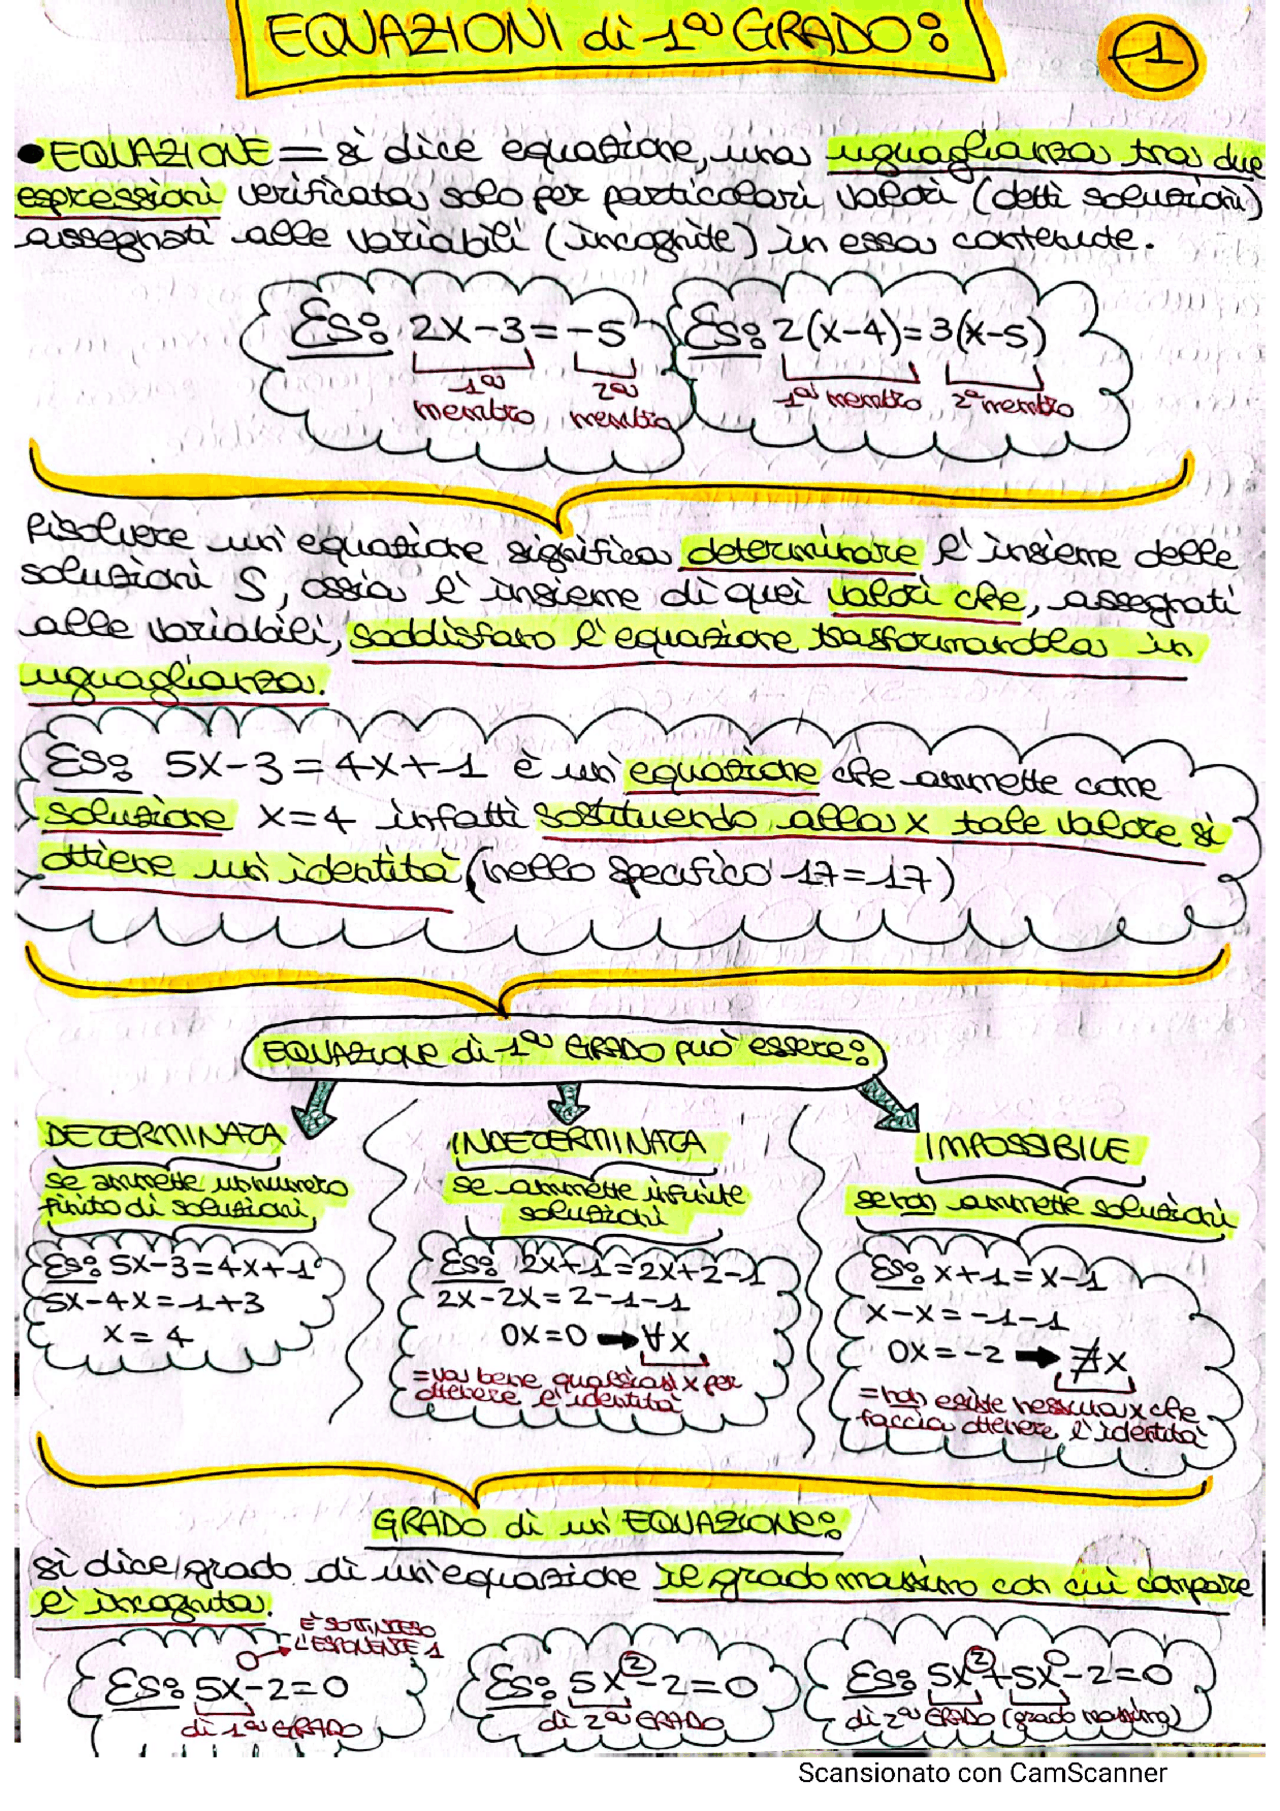 EQUAZIONI di 1° GRADO:
1
• EQUAZIONE = si dice equazione, una uguaglianza tra due
espressioni verificata solo per particolari valori (detti soluzioni)
assegnati alle variabili (incognite) in essa contenute.
Es: 2x-3=-5
1° membro
2° membro
Es: 2(x-4)=3(x-5)
1° membro
2° membro
Risolvere un'equazione significa determinare l'insieme delle
soluzioni S, ossia l'insieme di quei valori che, assegnati
alle variabili, soddisfano l'equazione trasformandola in
uguaglianza.
Es: 5x-3=4x+1 è un'equazione che ammette come
soluzione x=4 infatti sostituendo alla x tale valore si
ottiene un'identità (nello specifico 17=17)
EQUAZIONE di 1° GRADO può essere:
DETERMINATA
se ammette un numero
finito di soluzioni
Es: 5x-3=4x+1
5x-4x=1+3
x=4
INDETERMINATA
se ammette infinite
soluzioni
Es: 2x+1=2x+2-1
2x-2x=2-1-1
0x=0 → ∀x
=va bene qualsiasi x per
ottenere l'identità
IMPOSSIBILE
se non ammette soluzioni
Es: x+1=x-1
x-x=-1-1
0x=-2 → ∄x
=non esiste nessuna x che
faccia ottenere l'identità
GRADO di un'EQUAZIONE:
si dice grado di un'equazione il grado massimo con cui compare
l'incognita.
È SOTTINTESO
L'ESPONENTE 1
Es: 5x-2=0
di 1° GRADO
Es: 5x²-2=0
di 2° GRADO
Es: 5x²+5x-2=0
di 2° GRADO (grado massimo)
Scansionato con CamScanner